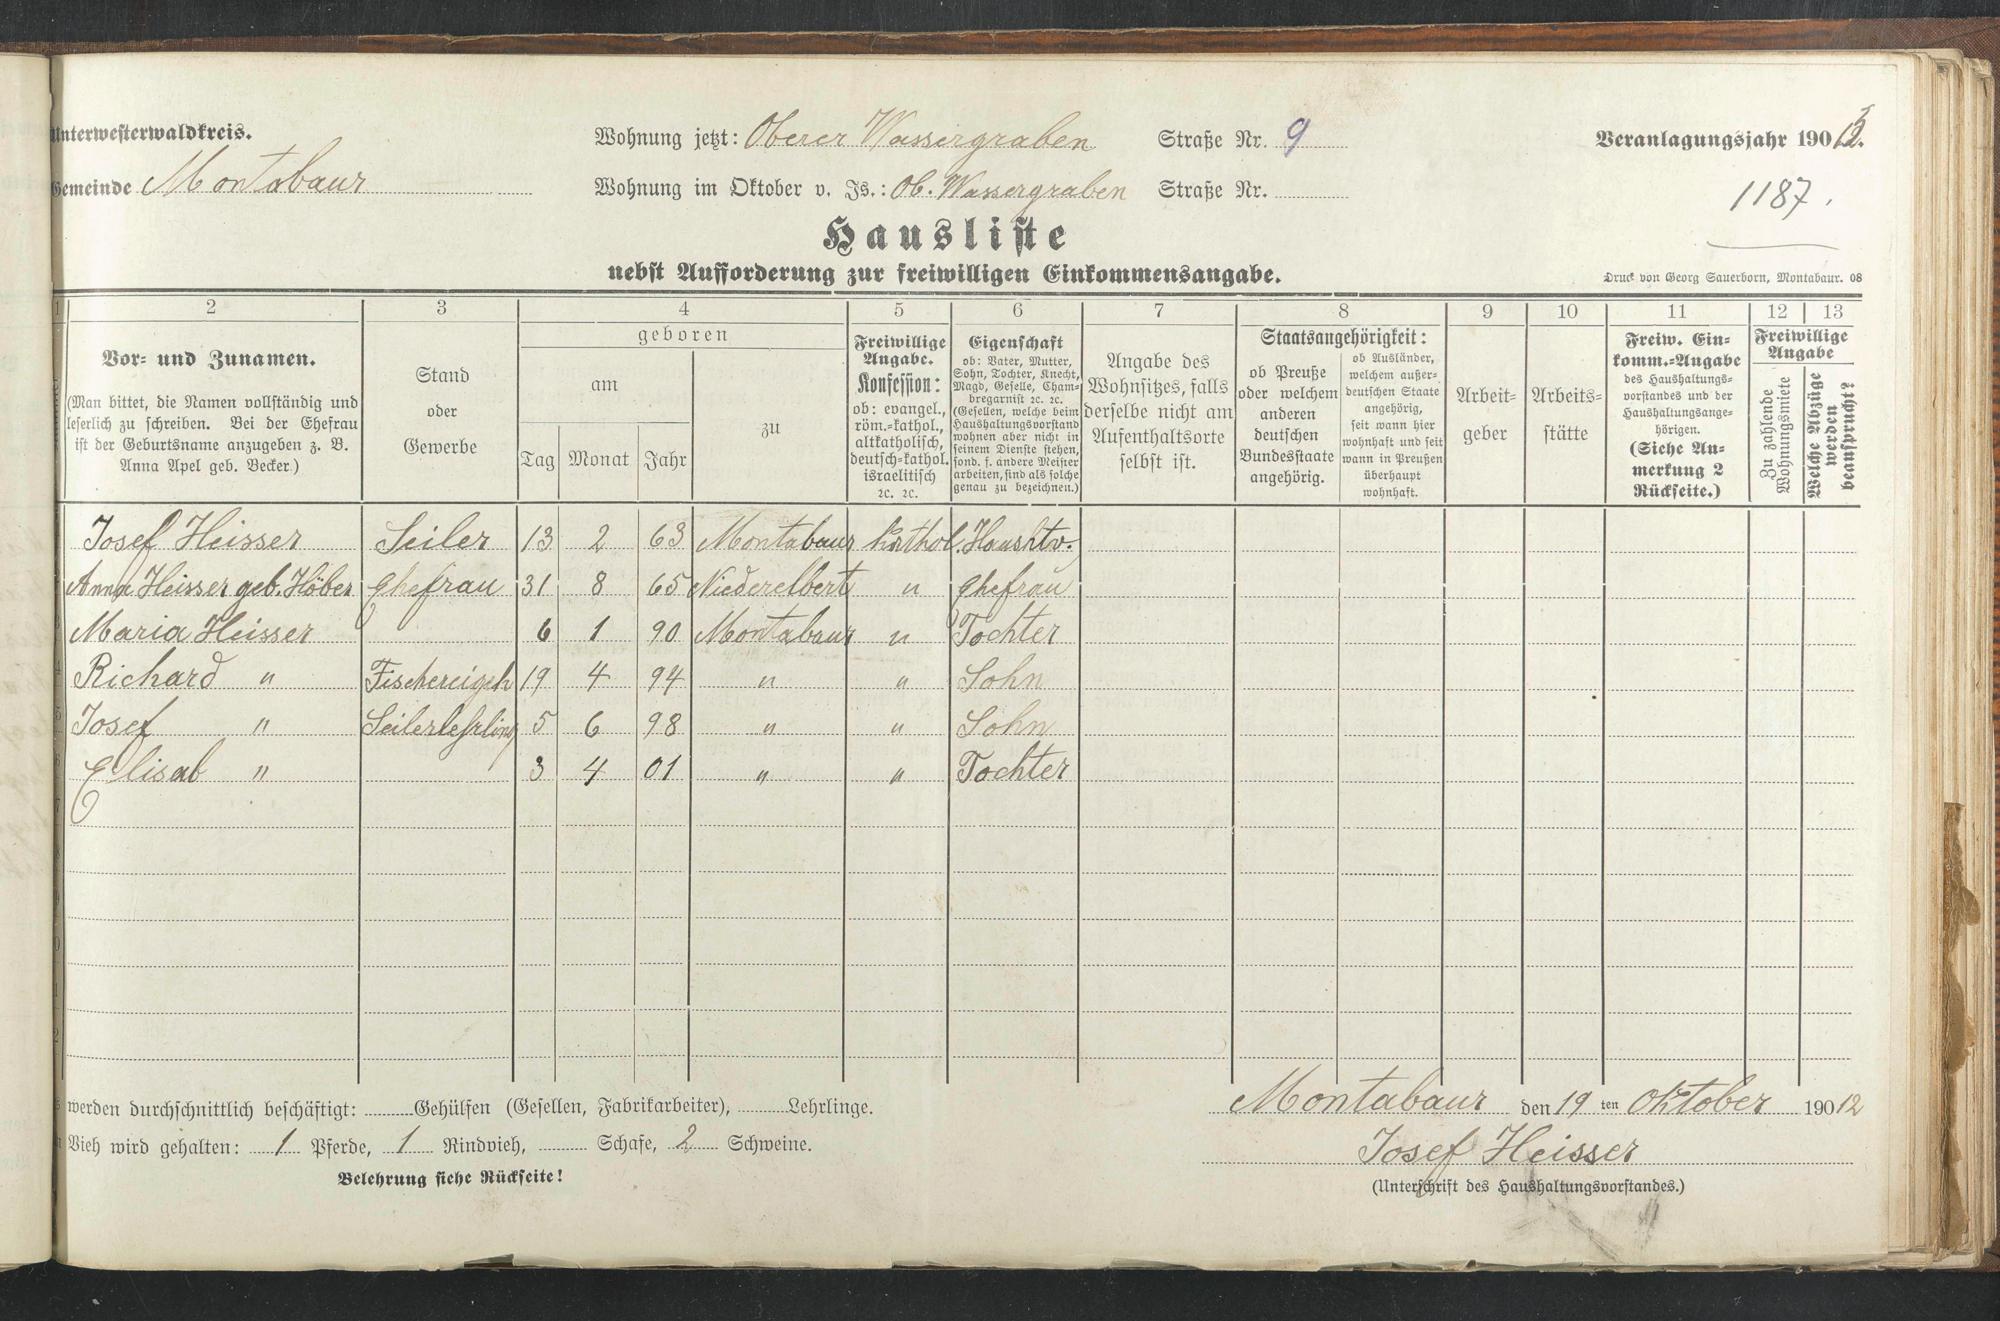 Unterwesterwaldkreis.
Gemeinde Montabaur
Wohnung jetzt: Oberer Wassergraben Straße Nr. 9
Wohnung im Oktober v. Js.: Ob. Wassergraben Straße Nr.
Veranlagungsjahr 1901
1187.
Hausliste
nebst Aufforderung zur freiwilligen Einkommensangabe.
Druck von Georg Sauerborn, Montabaur. 08
1 2 3 4 5 6 7 8 9 10 11 12 13
Vor- und Zunamen.
(Man bittet, die Namen vollständig und
leserlich zu schreiben. Bei der Ehefrau
ist der Geburtsname anzugeben z. B.
Anna Apel geb. Becker.)
Stand
oder
Gewerbe
geboren
am
Tag Monat Jahr
zu
Freiwillige
Angabe.
Konfession:
ob: evangel.,
röm.-kathol.,
altkatholisch,
deutsch-kathol.
israelitisch
ec. ec.
Eigenschaft
ob: Vater, Mutter,
Sohn, Tochter, Knecht,
Magd, Geselle, Cham-
bregarnist ec. ec.
(Gesellen, welche beim
Haushaltungsvorstand
wohnen aber nicht in
seinem Dienste stehen,
sond. f. andere Meister
arbeiten, sind als solche
genau zu bezeichnen.)
Angabe des
Wohnsitzes, falls
derselbe nicht am
Aufenthaltsorte
selbst ist.
Staatsangehörigkeit:
ob Preuße
oder welchem
anderen
deutschen
Bundesstaate
angehörig.
ob Ausländer,
welchem außer-
deutschen Staate
angehörig,
seit wann hier
wohnhaft und seit
wann in Preußen
überhaupt
wohnhaft.
Arbeit-
geber
Arbeits-
stätte
Freiw. Ein-
komm.-Angabe
des Haushaltungs-
vorstandes und der
Haushaltungsange-
hörigen.
(Siehe An-
merkung 2
Rückseite.)
Freiwillige
Angabe
Zu zahlende
Wohnungsmiete
Welche Abzüge
werden
beansprucht?
Josef Heisser Seiler 13 2 63 Montabaur kathol. Haushtv.
Anna Heisser geb. Höber Ehefrau 31 8 65 Niederelbert " Ehefrau
Maria Heisser 6 1 90 Montabaur " Tochter
4 Richard " 19 4 94 " " Sohn
5 Josef " Seilerlehrling 5 6 98 " " Sohn
6 Elisab " 3 4 01 " " Tochter
7
8
9
0
1
2
werden durchschnittlich beschäftigt: Gehülfen (Gesellen, Fabrikarbeiter), Lehrlinge.
Vieh wird gehalten: 1 Pferde, 1 Rindvieh, Schafe, 2 Schweine.
Belehrung siehe Rückseite!
Montabaur den 19 ten Oktober 19012
Josef Heisser
(Unterschrift des Haushaltungsvorstandes.)